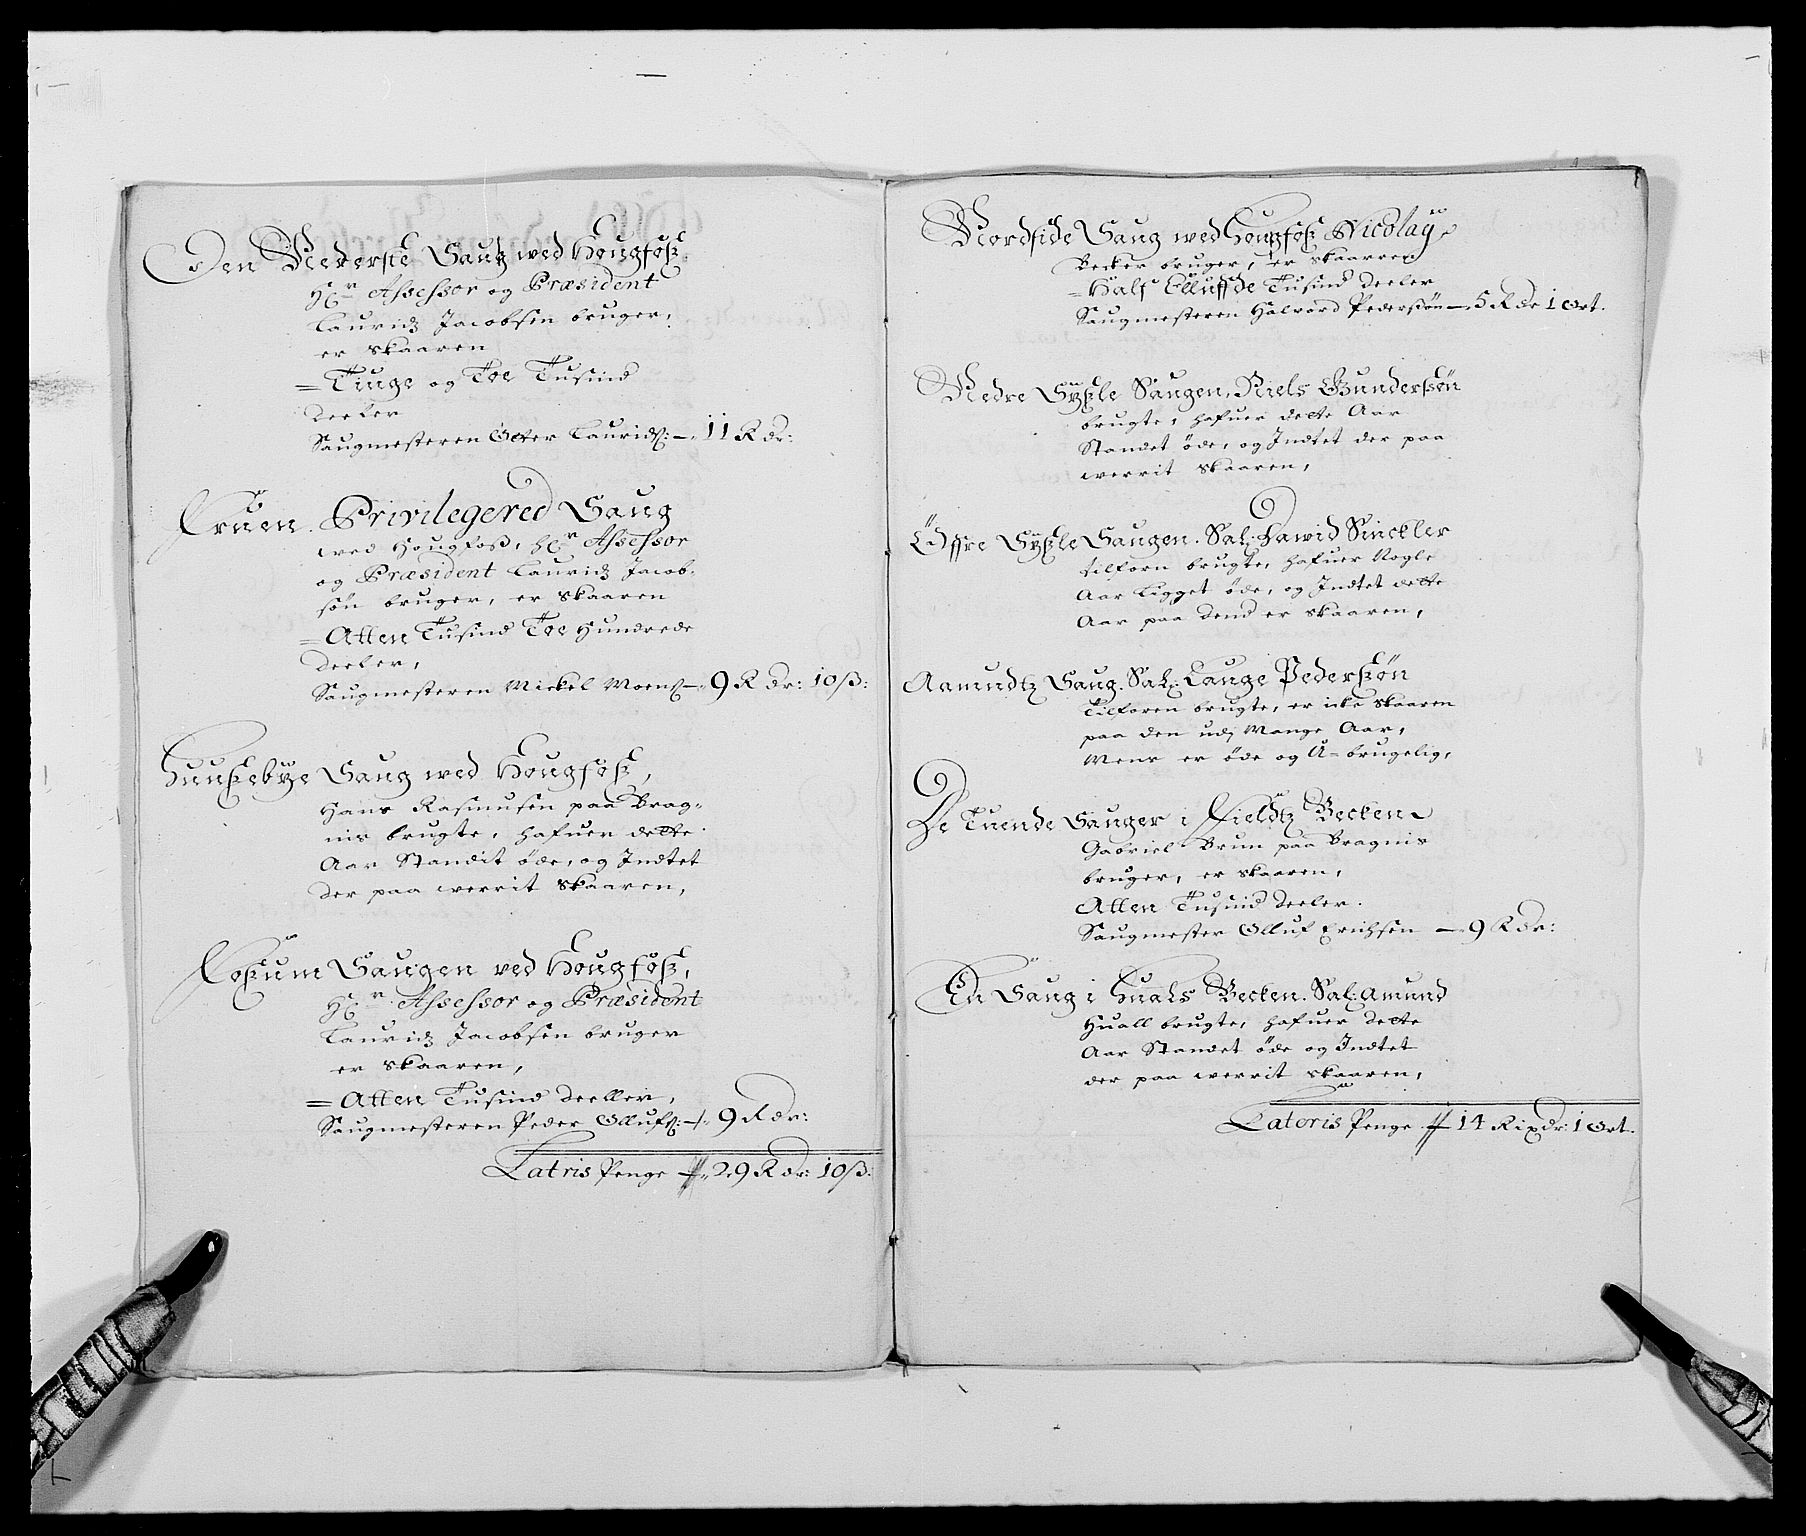 Den Nederste Saug wed Hougfosz.
Hr Assessor og Præsident
Lauridz Jacobsen bruger,
er skaaren
= Tiuge og Toe Tusind
deeler
Saugmesteren Otter Lauridsz: — 11 R dr:
Fruen Privilegered Saug
wed Hougfosz, Hr Assessor
og Præsident Lauridz Jacob-
søn bruger, er skaaren
= Atten Tusind Toe Hundrede
deeler,
Saugmesteren Mickel Moensz — 9 R dr: 10 ß:
Huuszebÿe Saug wed Hougfosz,
Hans Rasmusen paa Brag-
nis brugte, hafuer dette
Aar Standit øde, og Indtet
der paa werrit skaaren,
Foszum Saugen ved Hougfosz,
Hr Assessor og Præsident
Lauridz Jacobsen bruger
er skaaren,
= Atten Tusind deeller,
Saugmesteren Peder Ollufsz: — 9 R dr:
Latris Penge — 29 R dr: 10 ß:
Nordside Saug wed Hougfosz Nicolaÿ
Becker bruger, er skaarren
= Half Elluffde Tusind deeler
Saugmesteren Halvord Pederszøn — 5 R dr 1 Ort.
Nedre Sÿszle Saugen, Niels Gunderszøn
brugte, hafuer dette Aar
Standet øde, og Indtet der paa
werrit skaaren,
Öffre Sÿszle Saugen. Sal: Dawid Sinckler
tilforn brugte, hafuer Nogle
Aar Ligget øde, og Indtet dette
Aar paa dend er skaaren,
Aamundtz Saug. Sal: Lauge Pederszøn
Tilforen brugte, er icke skaaren
paa den udj Mange Aar,
Mens er øde og U-brugelig,
De Tuende Sauger i Fieldtz Becken
Gabriel Brun paa Bragnis
bruger, er skaaren,
Atten Tusind deeler.
Saugmester Olluf Erichsen — 9 R dr:
En Saug i Huals Becken. Sal: Amund
Huall brugte, hafuer dette
Aar Standet øde og Indtet
der paa werrit skaaren,
Lateris Penge — 14 Rixdr: 1 Ort.